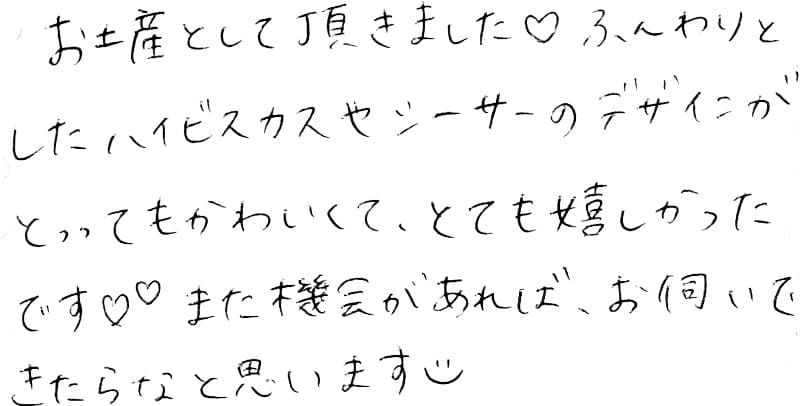 お土産として頂きました♡ ふんわりと
したハイビスカスやシーサーのデザインが
とってもかわいくて、とても嬉しかった
です♡♡ また機会があれば、お伺いで
きたらなと思います☺